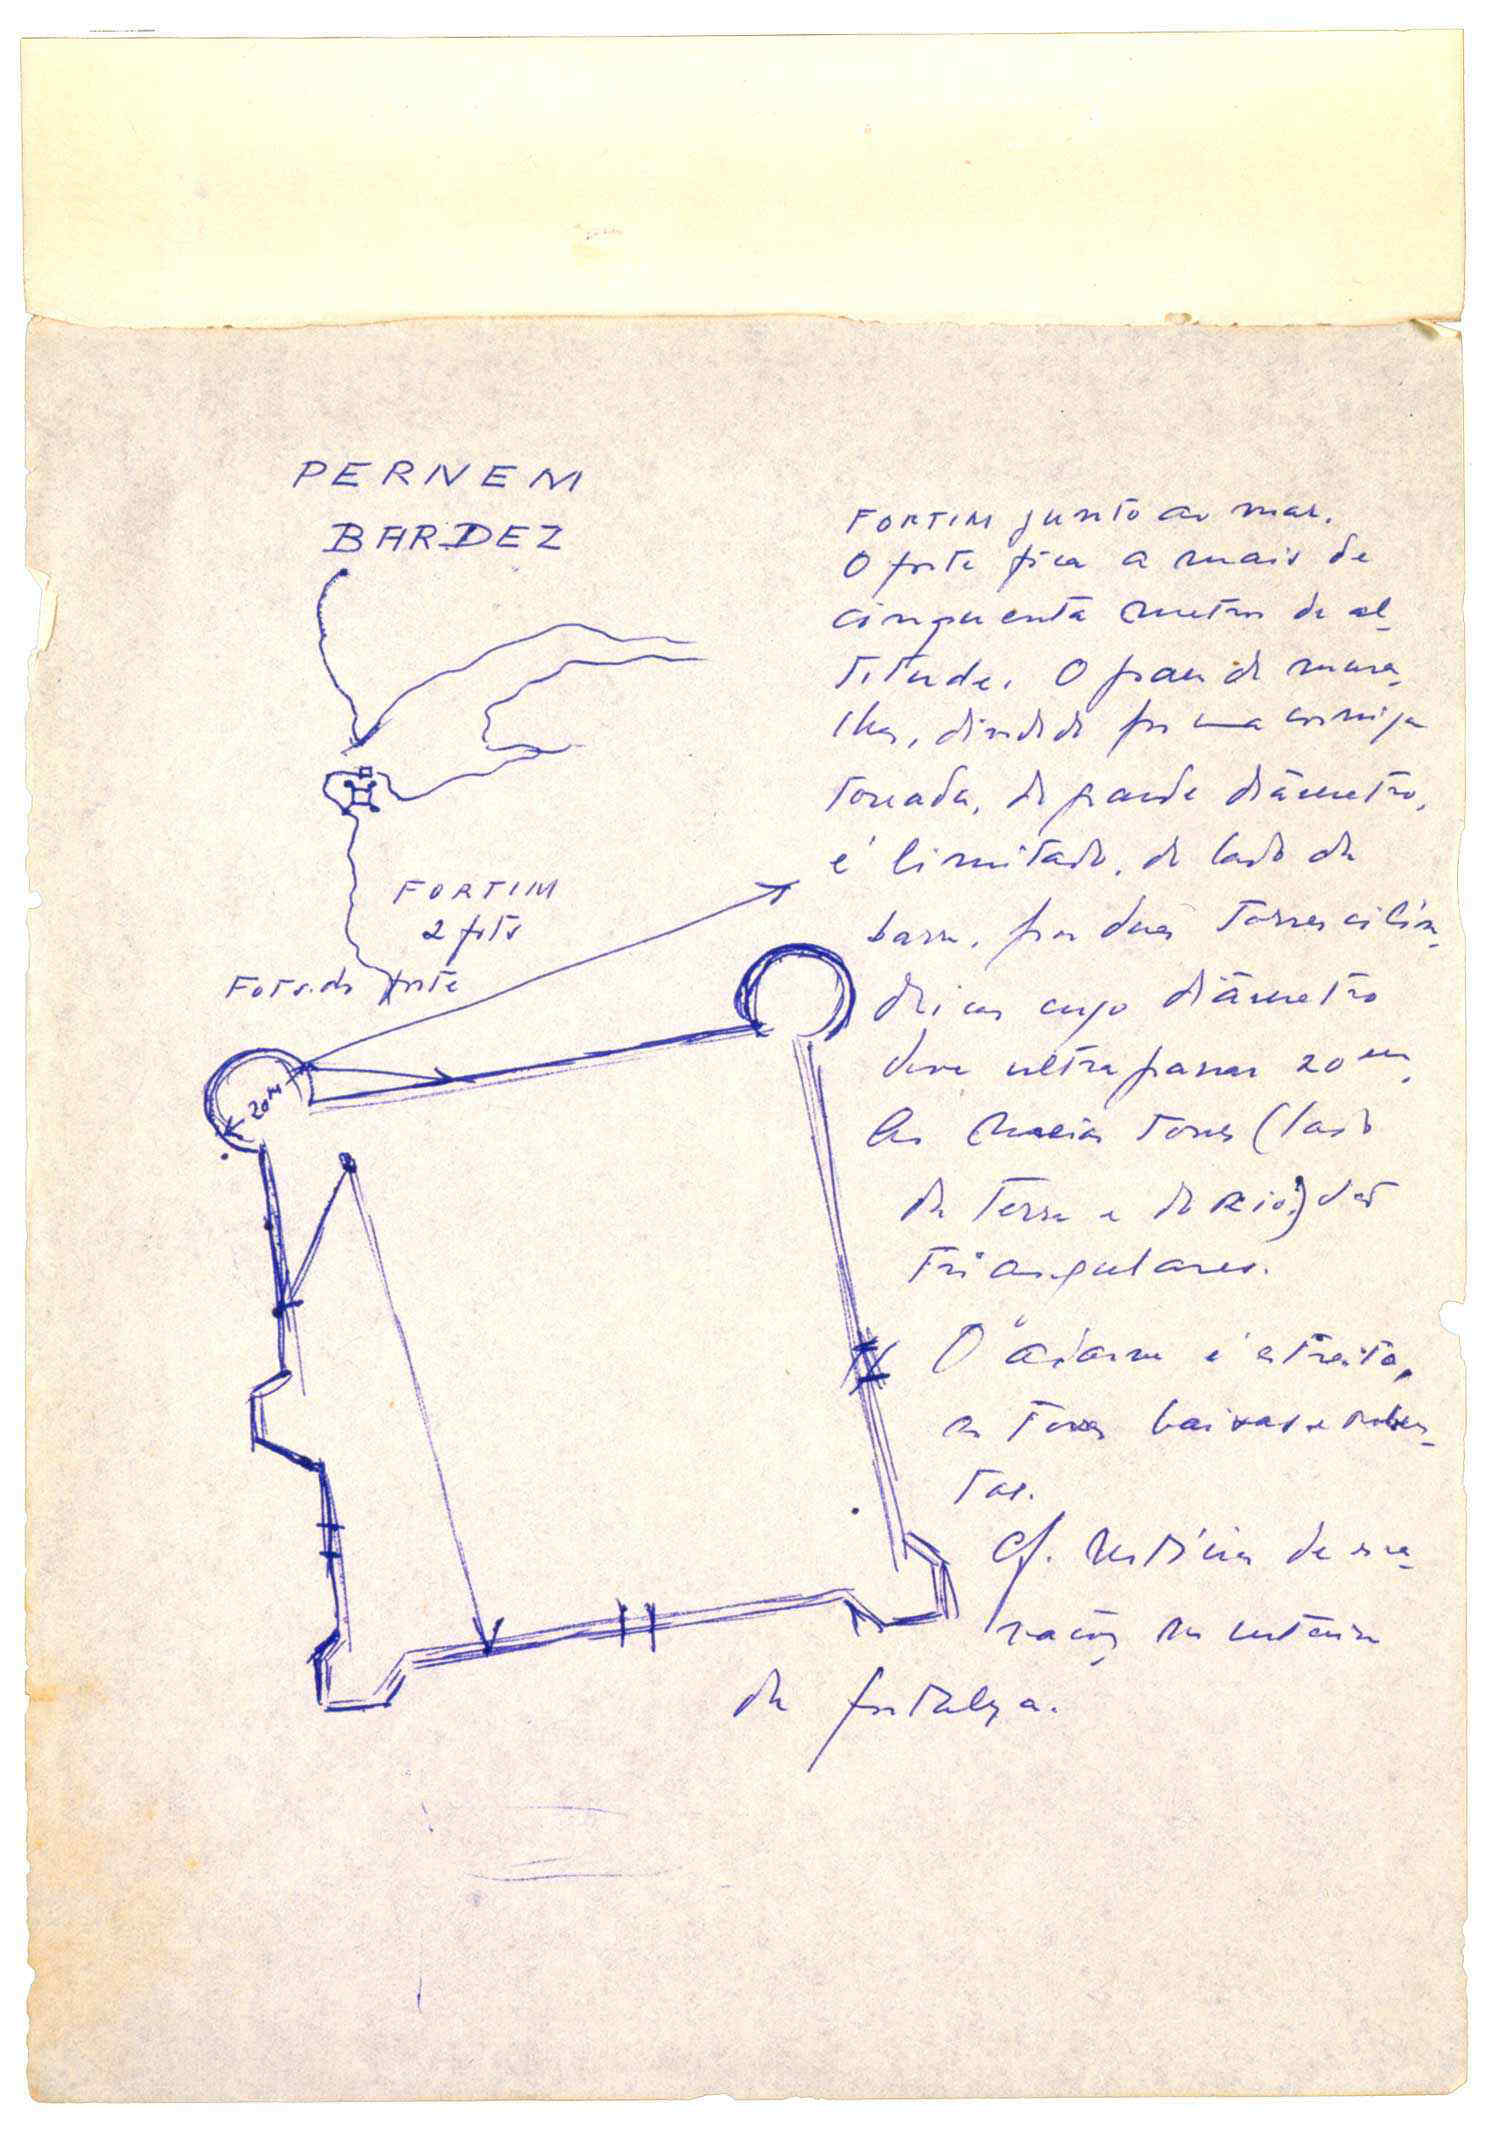 PERNEM
BARDEZ
FORTIM
2 fots
Fots. do forte
20 m
FORTIM junto ao mar.
O forte fica a mais de
cinquenta metros de al-
titude. O pano de mura-
lhas, dividido por uma cornija
toreada, de grande diâmetro,
é limitado, do lado da
barra, por duas torres cilín-
dricas cujo diâmetro
deve ultrapassar 20 m.
As meias torres (lado
da terra e do rio) são
triangulares.
O adarve é estreito,
as torres baixas e robus-
tas.
Cf. notícias de
na
da fortaleza.